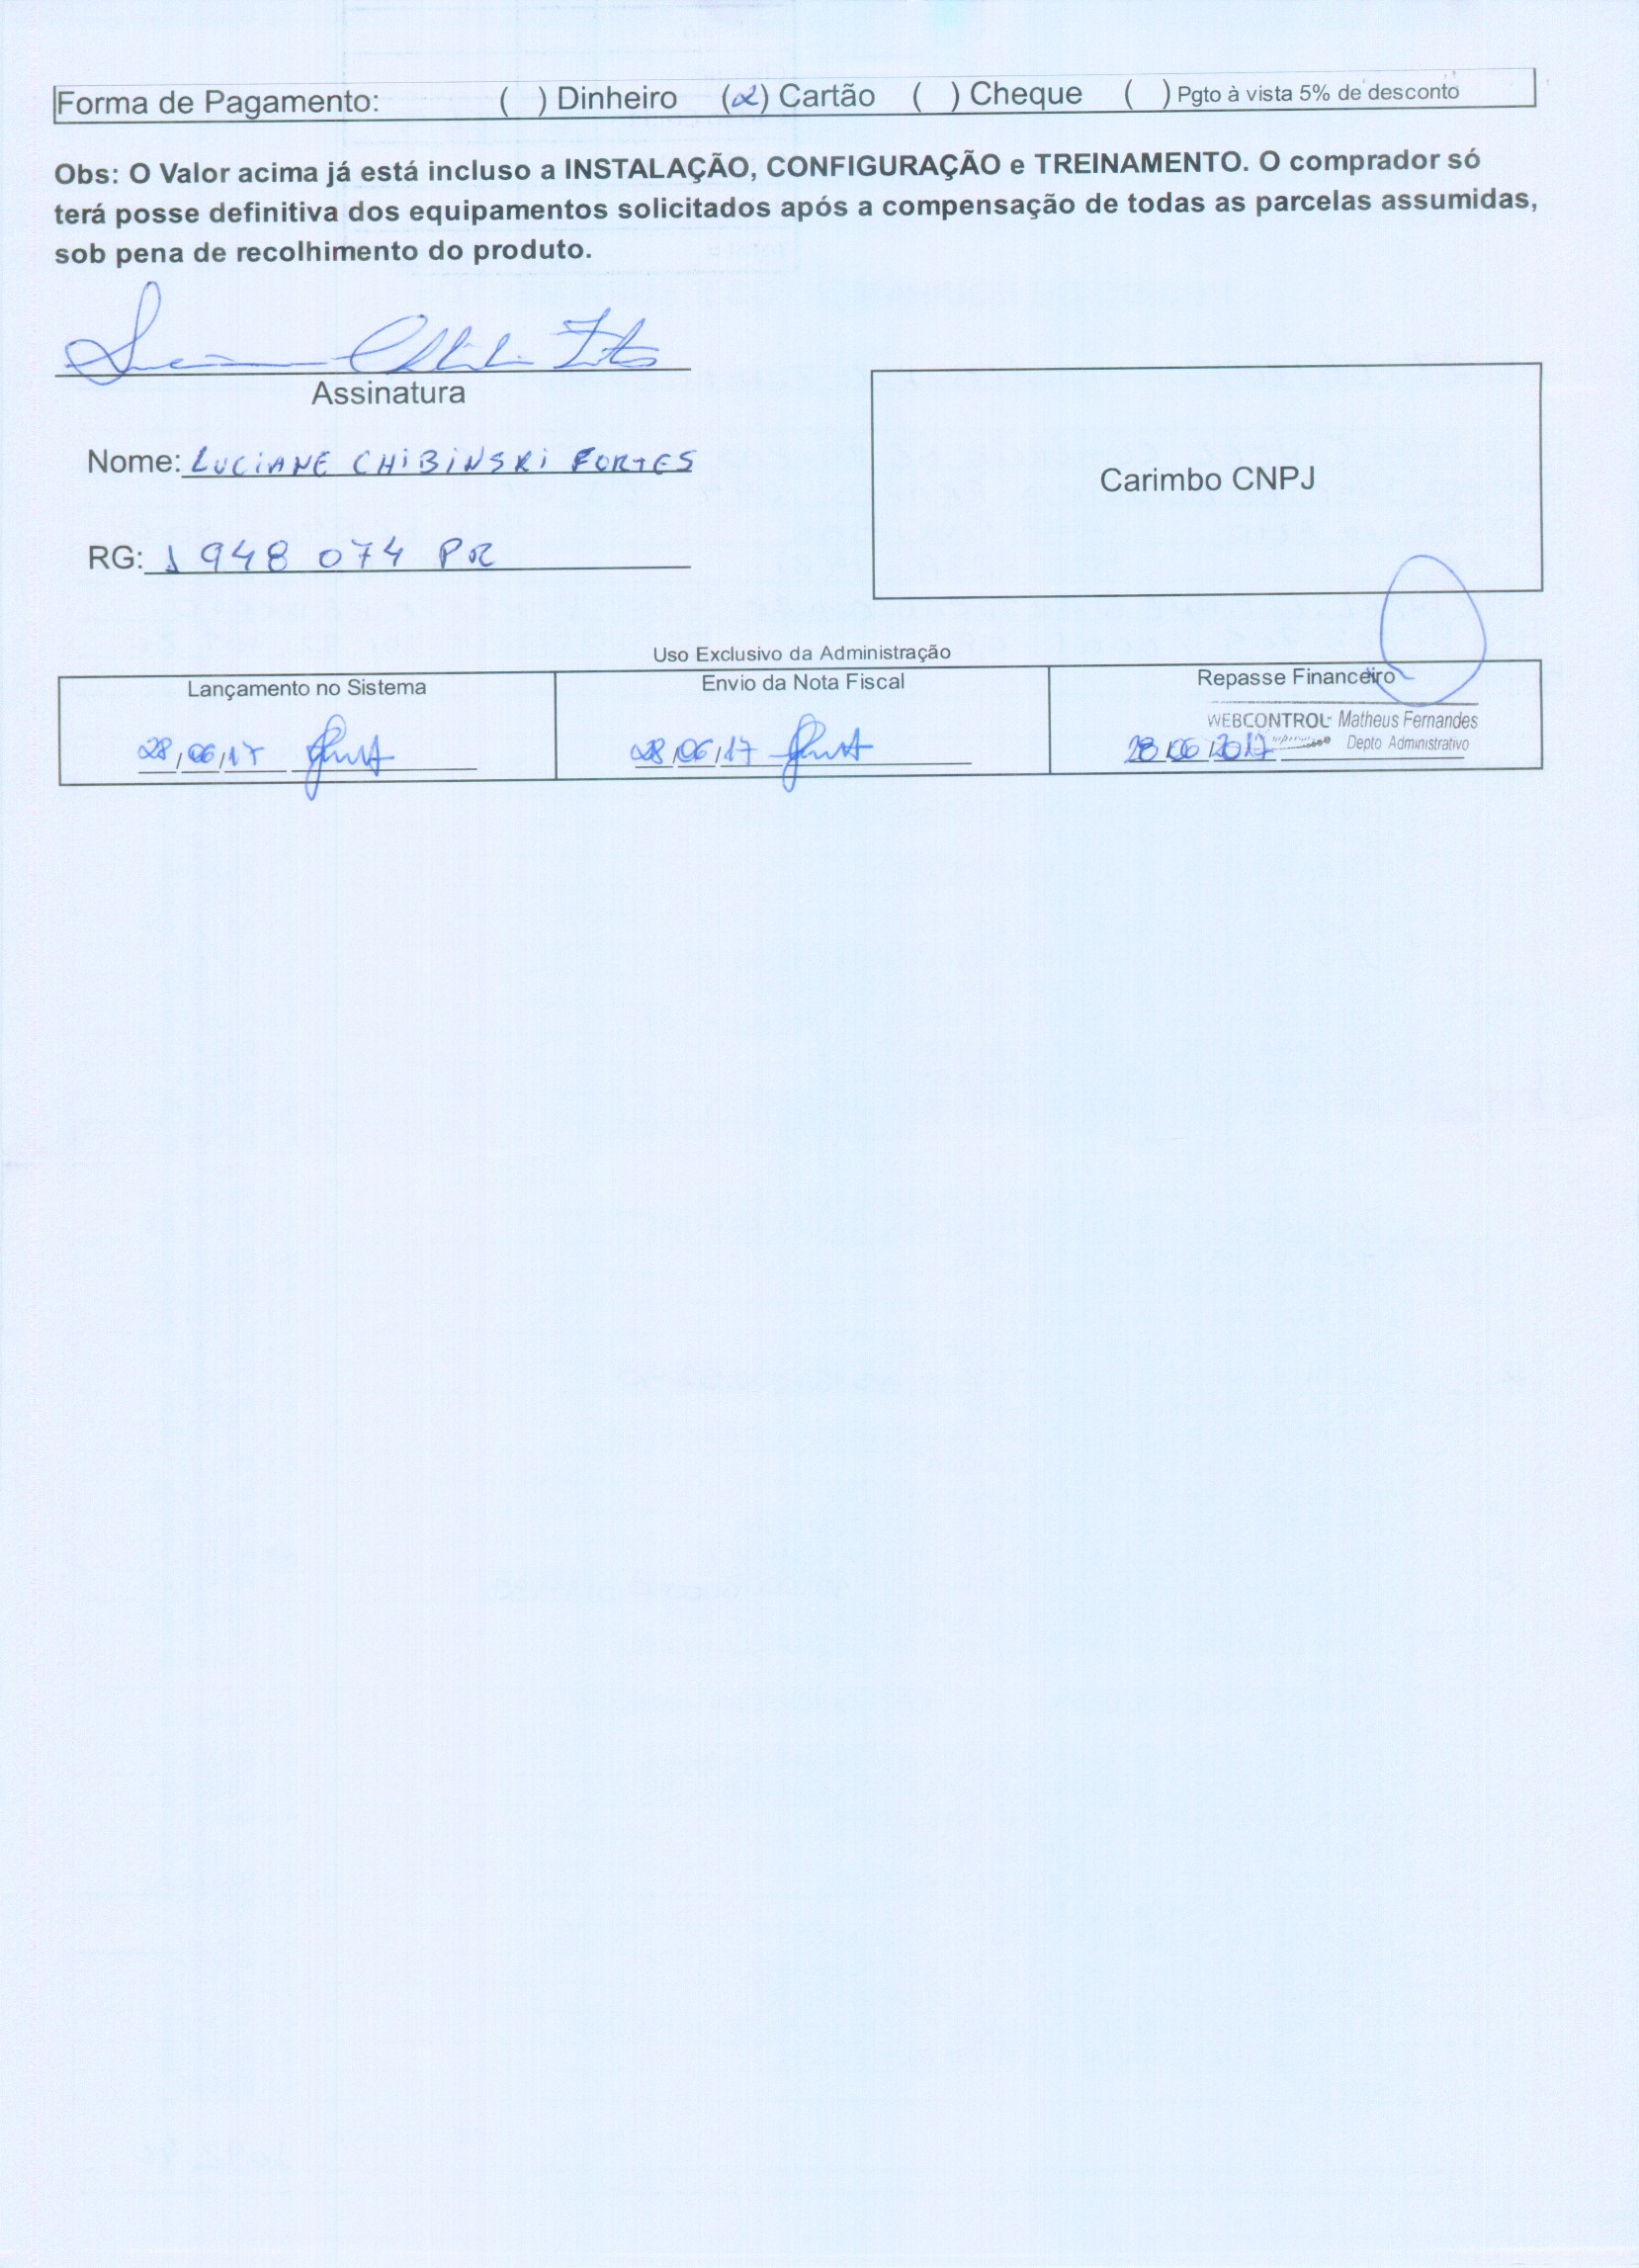 Forma de Pagamento: ( ) Dinheiro (x) Cartão ( ) Cheque ( ) Pgto à vista 5% de desconto
Obs: O Valor acima já está incluso a INSTALAÇÃO, CONFIGURAÇÃO e TREINAMENTO. O comprador só
terá posse definitiva dos equipamentos solicitados após a compensação de todas as parcelas assumidas,
sob pena de recolhimento do produto.
Assinatura
Nome: LUCIANE CHIBINSKI FORTES
RG: 1 948 074 PR
Carimbo CNPJ
Uso Exclusivo da Administração
Lançamento no Sistema
28/06/17
Envio da Nota Fiscal
28/06/17
Repasse Financeiro
WEBCONTROL Matheus Fernandes
Depto Administrativo
28/06/2017